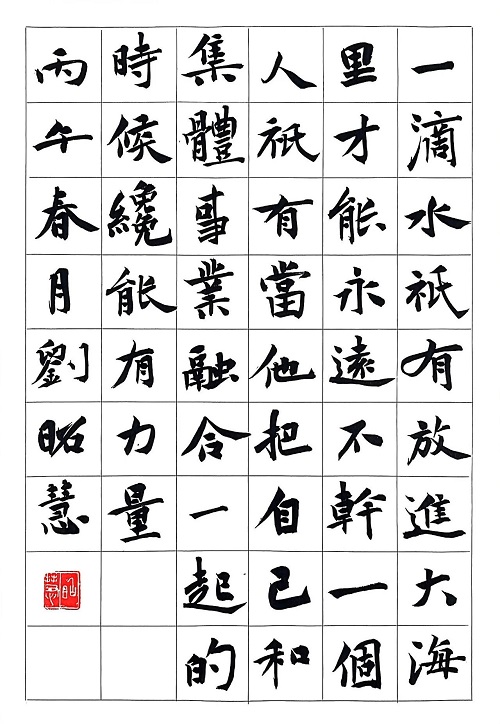 一滴水祇有放進大海
里才能永遠不幹一個
人祇有當他把自己和
集體事業融合一起的
時候纔能有力量
丙午春月劉昭慧